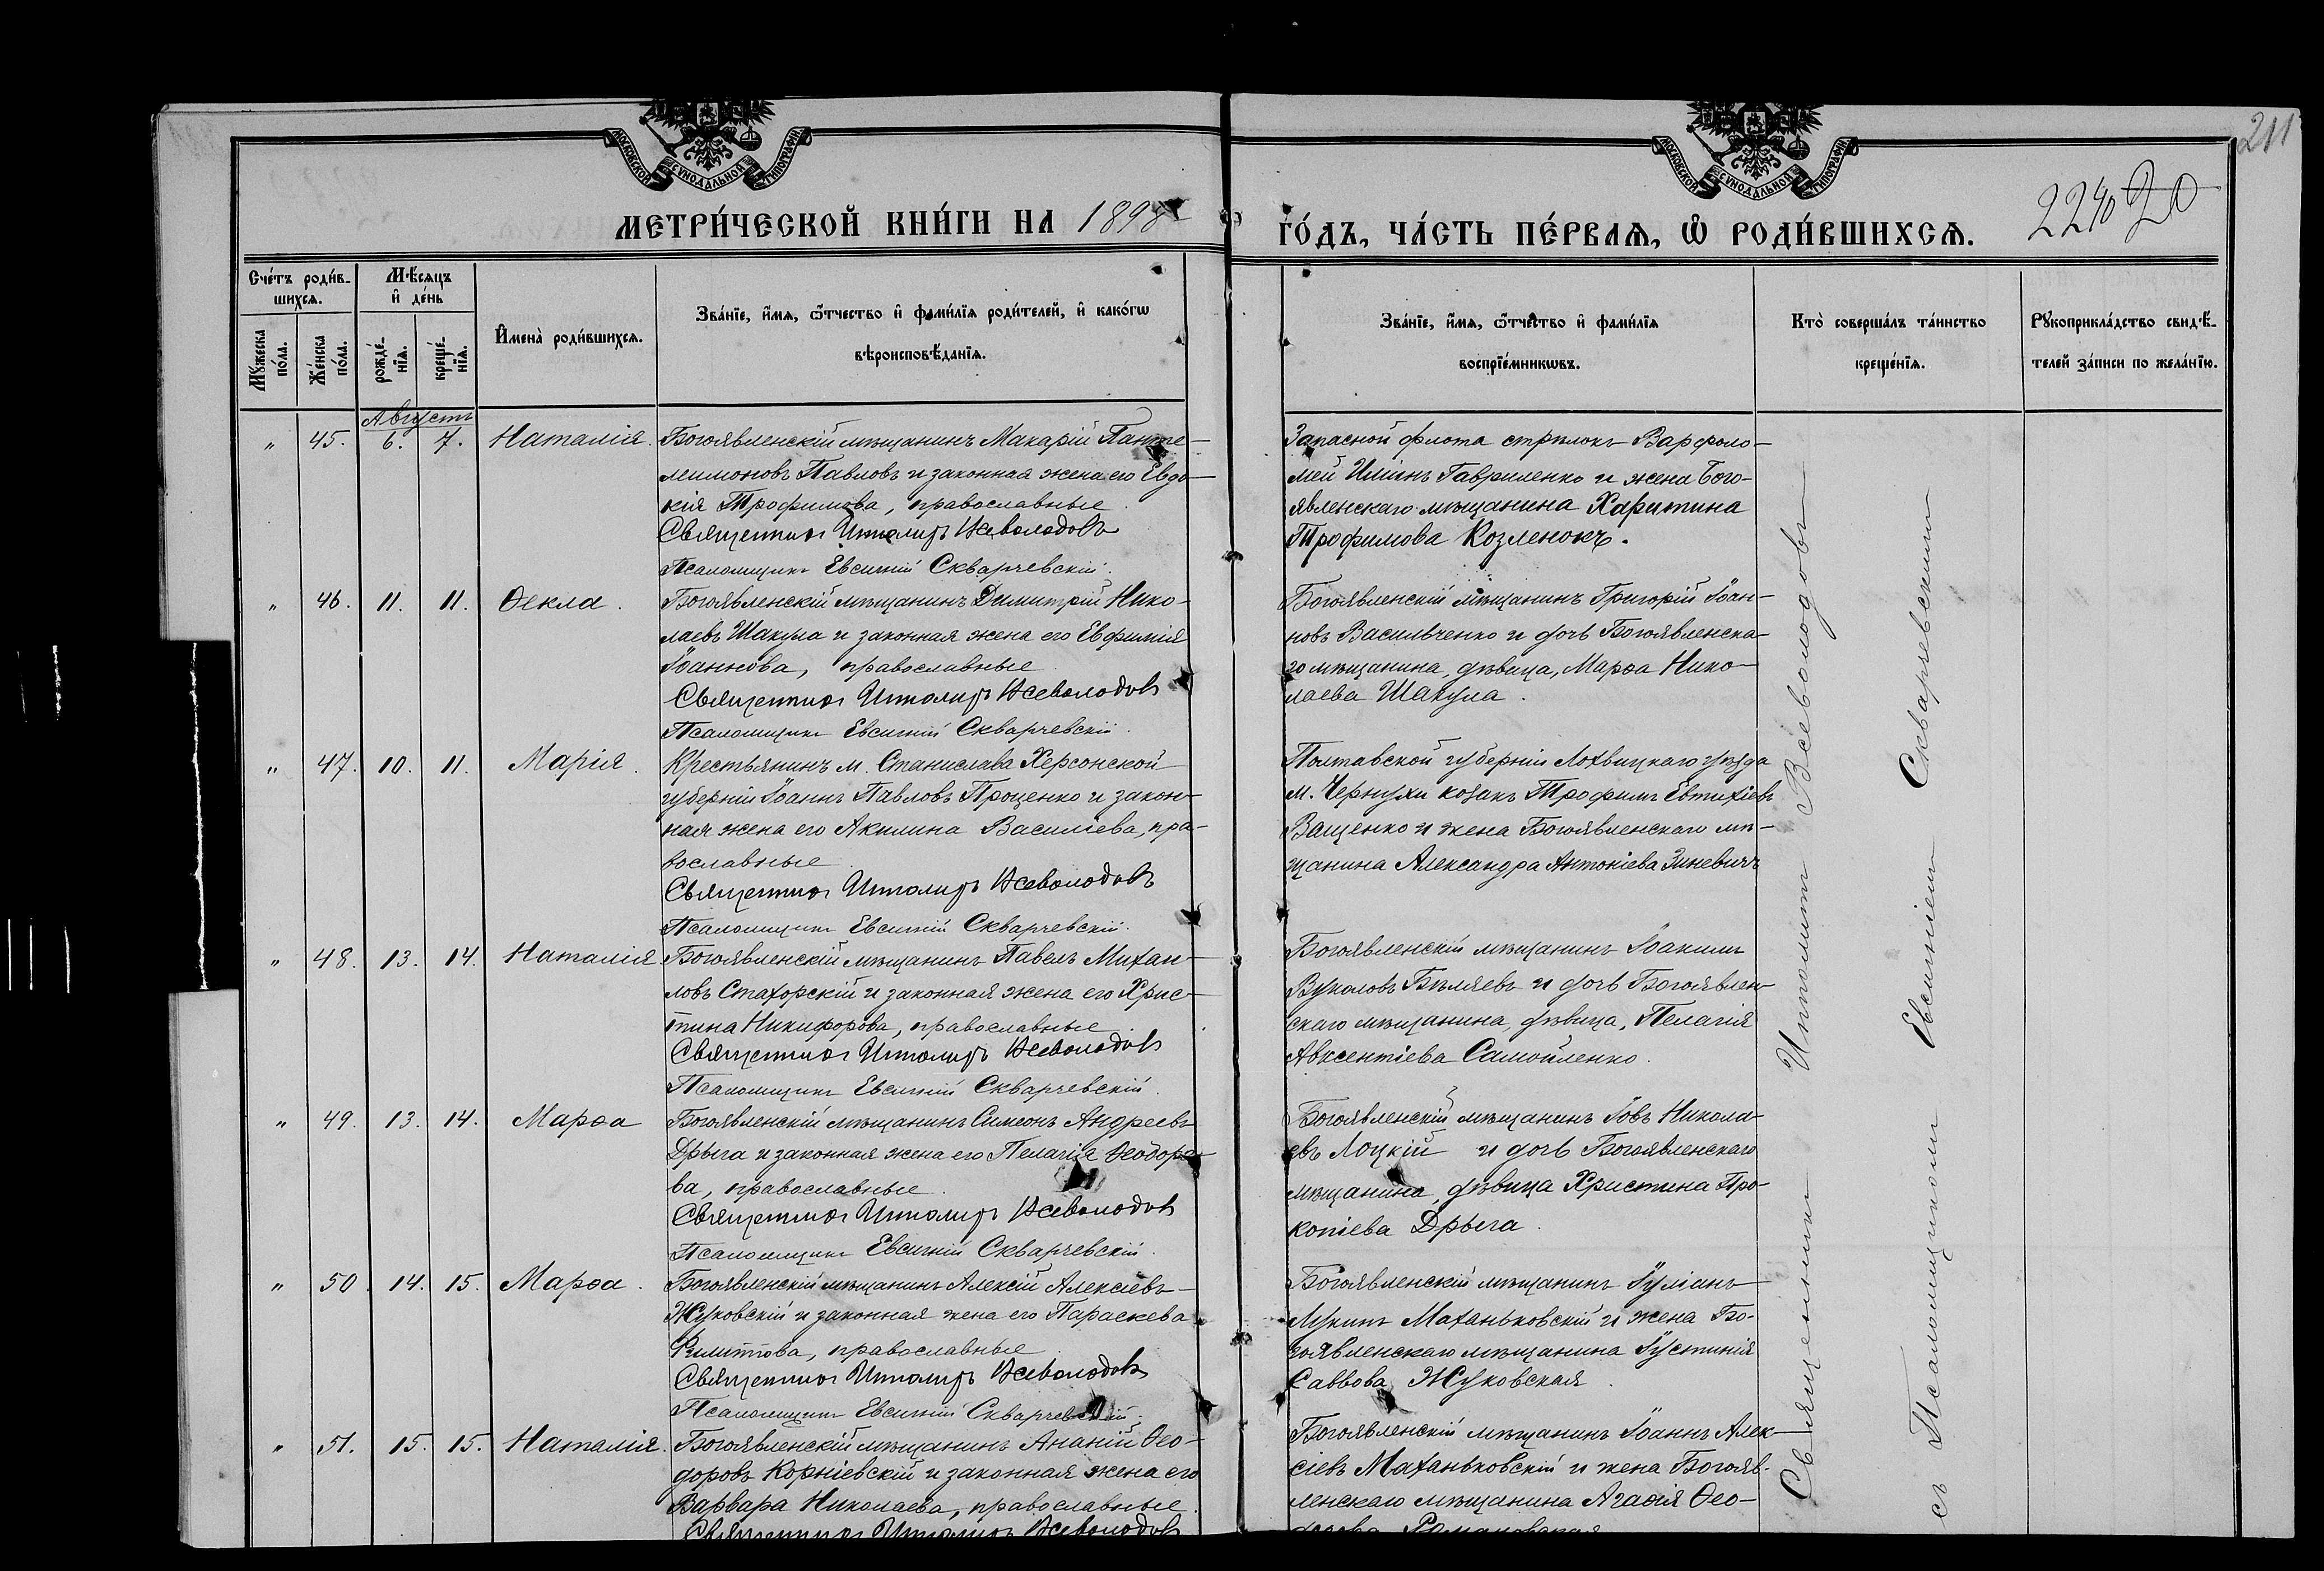 211
2240 20
МОСКОВСКОЙ СѴНОДАЛЬНОЙ ТИПОГРАФІИ
МОСКОВСКОЙ СѴНОДАЛЬНОЙ ТИПОГРАФІИ
МЕТРИ́ЧЕСКОЙ КНИ́ГИ НА 1898
ГО́ДЪ, ЧА́СТЬ ПЕ́РВАѦ, Ѽ РОДИ́ВШИХСѦ.
Сче́тъ роди́в-
шихсѧ.
Мꙋ́жеска
по́ла.
Же́нска
по́ла.
Мѣ́сѧцъ
и҆ де́нь
рожде́-
нїѧ.
креще́-
нїѧ.
И҆мена̀ роди́вшихсѧ.
Зва́нїе, и҆́мѧ, ѻ҆́тчество и҆ фамі́лїѧ роди́телей, и҆ како́гѡ
вѣроисповѣ́данїѧ.
Зва́нїе, и҆́мѧ, ѻ҆́тчество и҆ фамі́лїѧ
воспрїе́мникѡвъ.
Кто̀ соверша́лъ та́инство
креще́нїѧ.
Рꙋкоприкла́дство свидѣ́-
телей за́писи по жела́нїю.
Августъ
" 45. 6. 7. Наталія.
Богоявленскій мѣщанинъ Макарій Панте-
леимоновъ Павловъ и законная жена его Евдо-
кія Трофимова, православные
Священникъ Ипполитъ Всеволодовъ
Псаломщикъ Евсигній Скварчевскій.
Запасной флота стрѣлокъ Варфоло-
мей Иліинъ Гавриленко и жена Бого-
явленскаго мѣщанина Харитина
Трофимова Козленокъ.
" 46. 11. 11. Ѳекла.
Богоявленскій мѣщанинъ Димитрій Нико-
лаевъ Шакула и законная жена его Евфимія
Іоаннова, православные
Священникъ Ипполитъ Всеволодовъ
Псаломщикъ Евсигній Скварчевскій.
Богоявленскій мѣщанинъ Григорій Іоан-
новъ Васильченко и дочь Богоявленска-
го мѣщанина, дѣвица, Марѳа Нико-
лаева Шакула.
" 47. 10. 11. Марія.
Крестьянинъ м. Станислава Херсонской
губерніи Іоаннъ Павловъ Проценко и закон-
ная жена его Акилина Василіева, пра-
вославные
Священникъ Ипполитъ Всеволодовъ
Псаломщикъ Евсигній Скварчевскій.
Полтавской губерніи Лохвицкаго уѣзда
м. Чернухи козакъ Трофимъ Евтихіевъ
Ващенко и жена Богоявленскаго мѣ-
щанина Александра Антоніева Зиневичъ
" 48. 13. 14. Наталія
Богоявленскій мѣщанинъ Павелъ Михаи-
ловъ Стахорскій и законная жена его Хрис-
тина Никифорова, православные
Священникъ Ипполитъ Всеволодовъ
Псаломщикъ Евсигній Скварчевскій.
Богоявленскій мѣщанинъ Іоакимъ
Вуколовъ Бѣляевъ и дочь Богоявлен-
скаго мѣщанина, дѣвица, Пелагія
Авксентіева Самойленко.
" 49. 13. 14. Марѳа
Богоявленскій мѣщанинъ Симеонъ Андреевъ
Дрыга и законная жена его Пелагія Ѳеодоро-
ва, православные.
Священникъ Ипполитъ Всеволодовъ
Псаломщикъ Евсигній Скварчевскій.
Богоявленскій мѣщанинъ Іовъ Никола-
евъ Лоцкій и дочь Богоявленскаго
мѣщанина, дѣвица Христина Про-
копіева Дрыга.
" 50. 14. 15. Марѳа.
Богоявленскій мѣщанинъ Алексій Алексіевъ
Жуковскій и законная жена его Параскева
Филиппова, православные
Священникъ Ипполитъ Всеволодовъ
Псаломщикъ Евсигній Скварчевскій.
Богоявленскій мѣщанинъ Іуліанъ
Лукинъ Маханьковскій и жена Бо-
гоявленскаго мѣщанина Іустинія
Саввова Жуковская.
" 51. 15. 15. Наталія.
Богоявленскій мѣщанинъ Ананій Ѳео-
доровъ Корніевскій и законная жена его
Варвара Николаева, православные.
Священникъ Ипполитъ Всеволодовъ
Богоявленскій мѣщанинъ Іоаннъ Алек-
сіевъ Маханьковскій и жена Богояв-
ленскаго мѣщанина Агаѳія Ѳео-
дорова Романовская
Священникъ Ипполитъ Всеволодовъ
съ Псаломщикомъ Евсигніемъ Скварчевскимъ